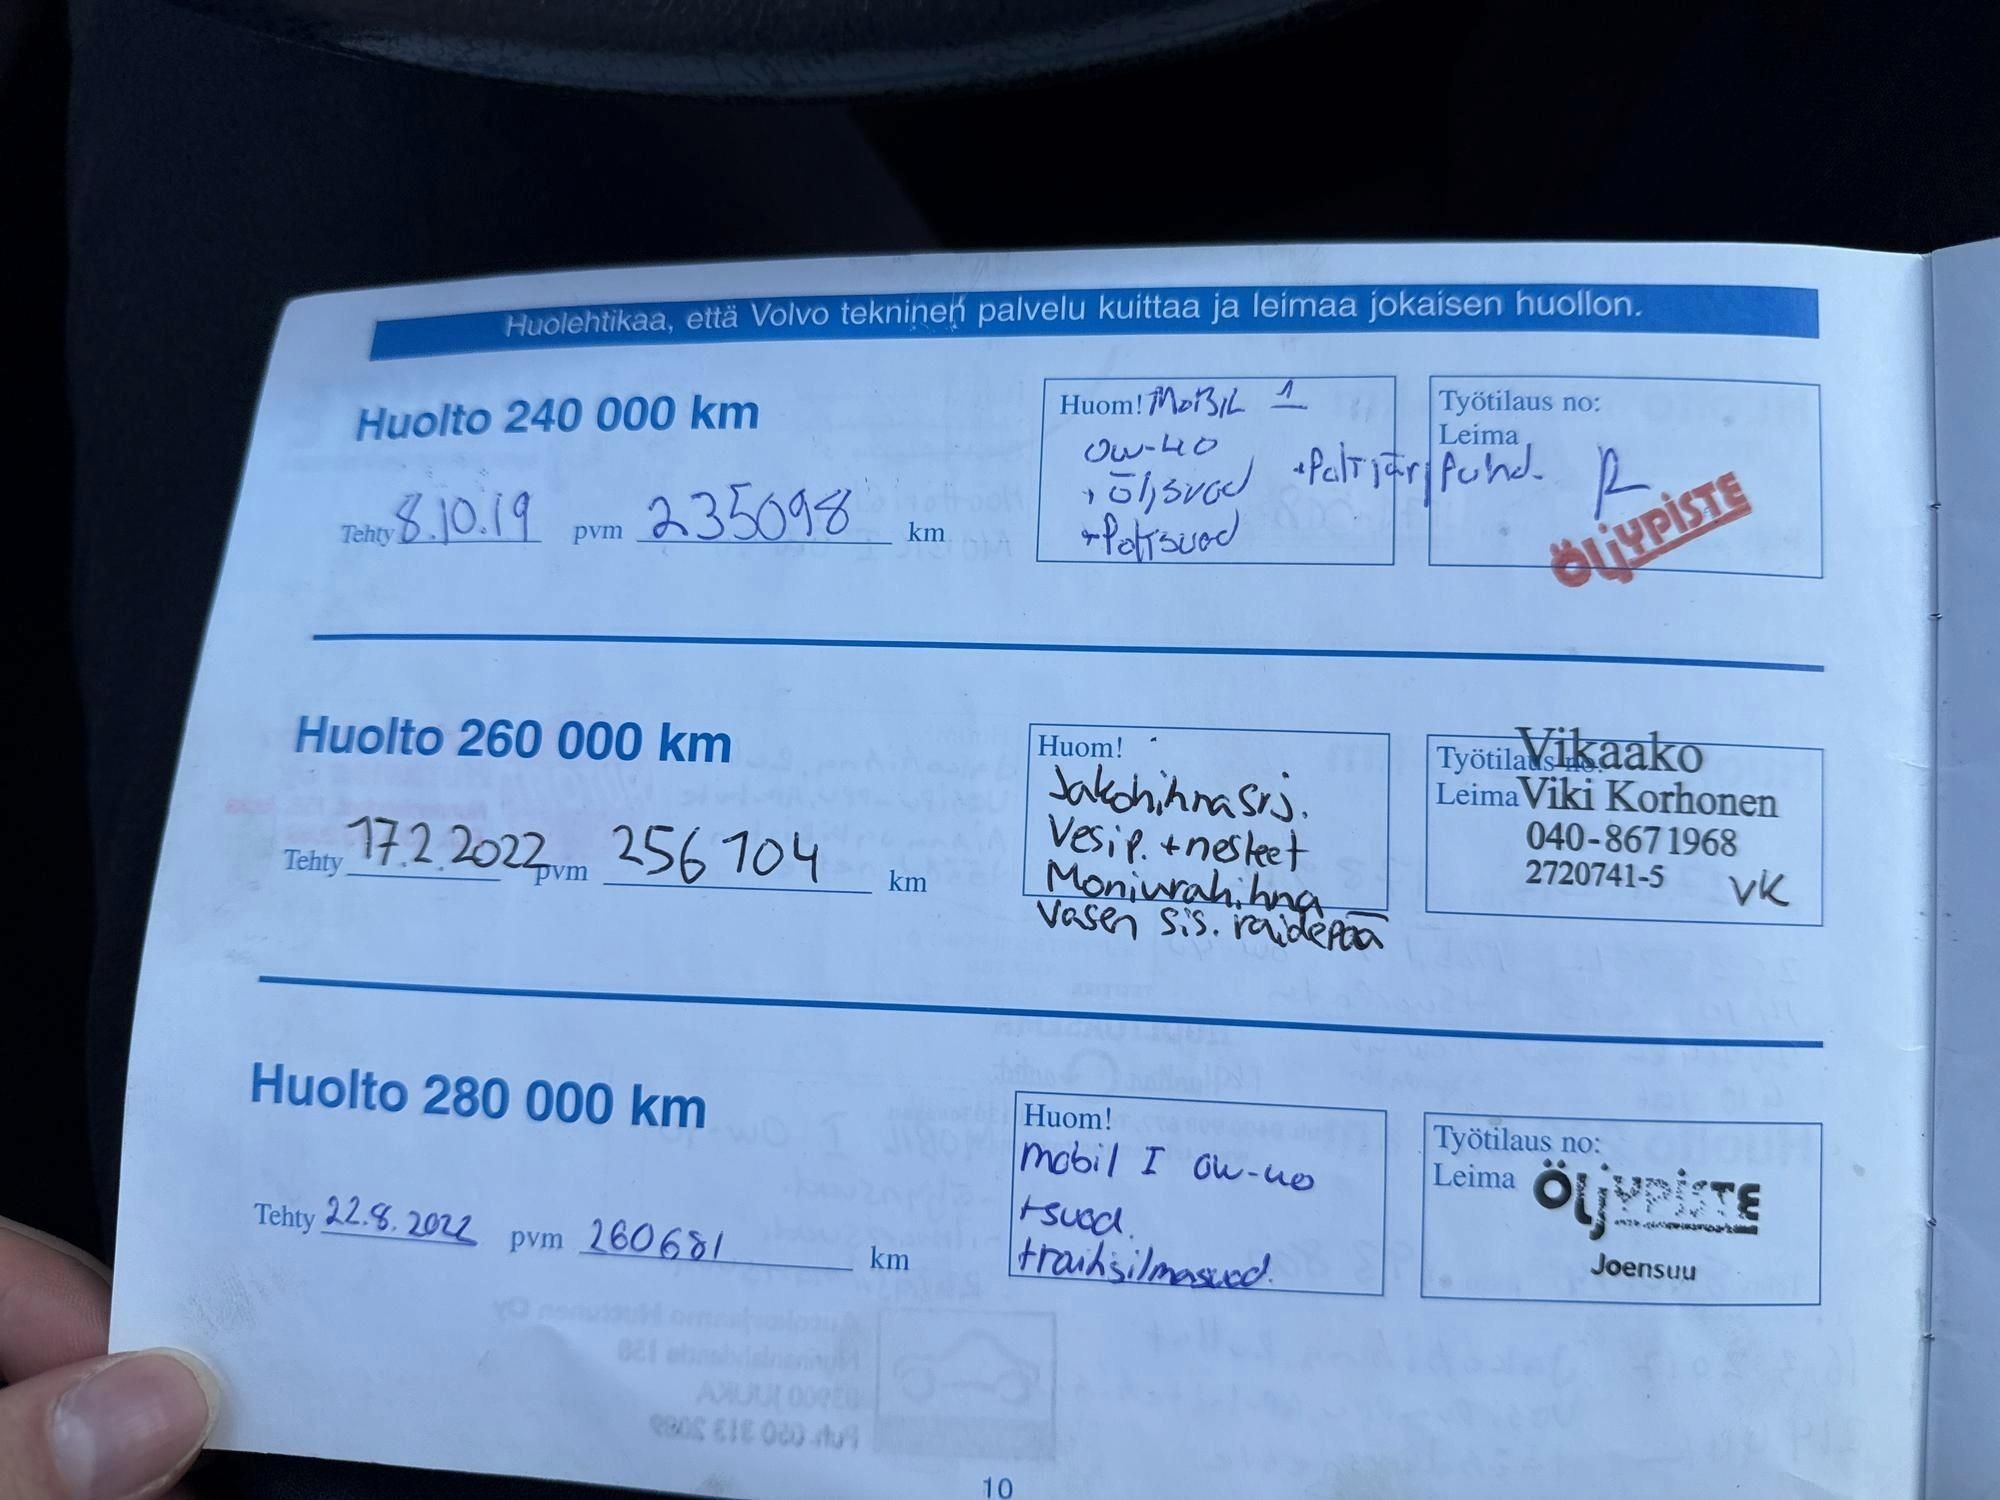 Huolehtikaa, että Volvo tekninen palvelu kuittaa ja leimaa jokaisen huollon.
Huolto 240 000 km
Tehty 8.10.19 pvm 235098 km
Huom! MOBIL 1
0W-40
+ öljsuod
+Poltsuod
+Poltjärj Puhd.
Työtilaus no:
Leima
ÖLJYPISTE
Huolto 260 000 km
Tehty 17.2.2022 pvm 256104 km
Huom!
Jakohihnasrj.
Vesip. + nesteet
Moniurahihna
Vasen sis. raidepää
Työtilaus no:
Leima
Vikaako
Viki Korhonen
040-8671968
2720741-5
VK
Huolto 280 000 km
Tehty 22.8.2022 pvm 260681 km
Huom!
Mobil I 0W-40
+suod.
+raitisilmasuod.
Työtilaus no:
Leima
ÖLJYPISTE
Joensuu
10